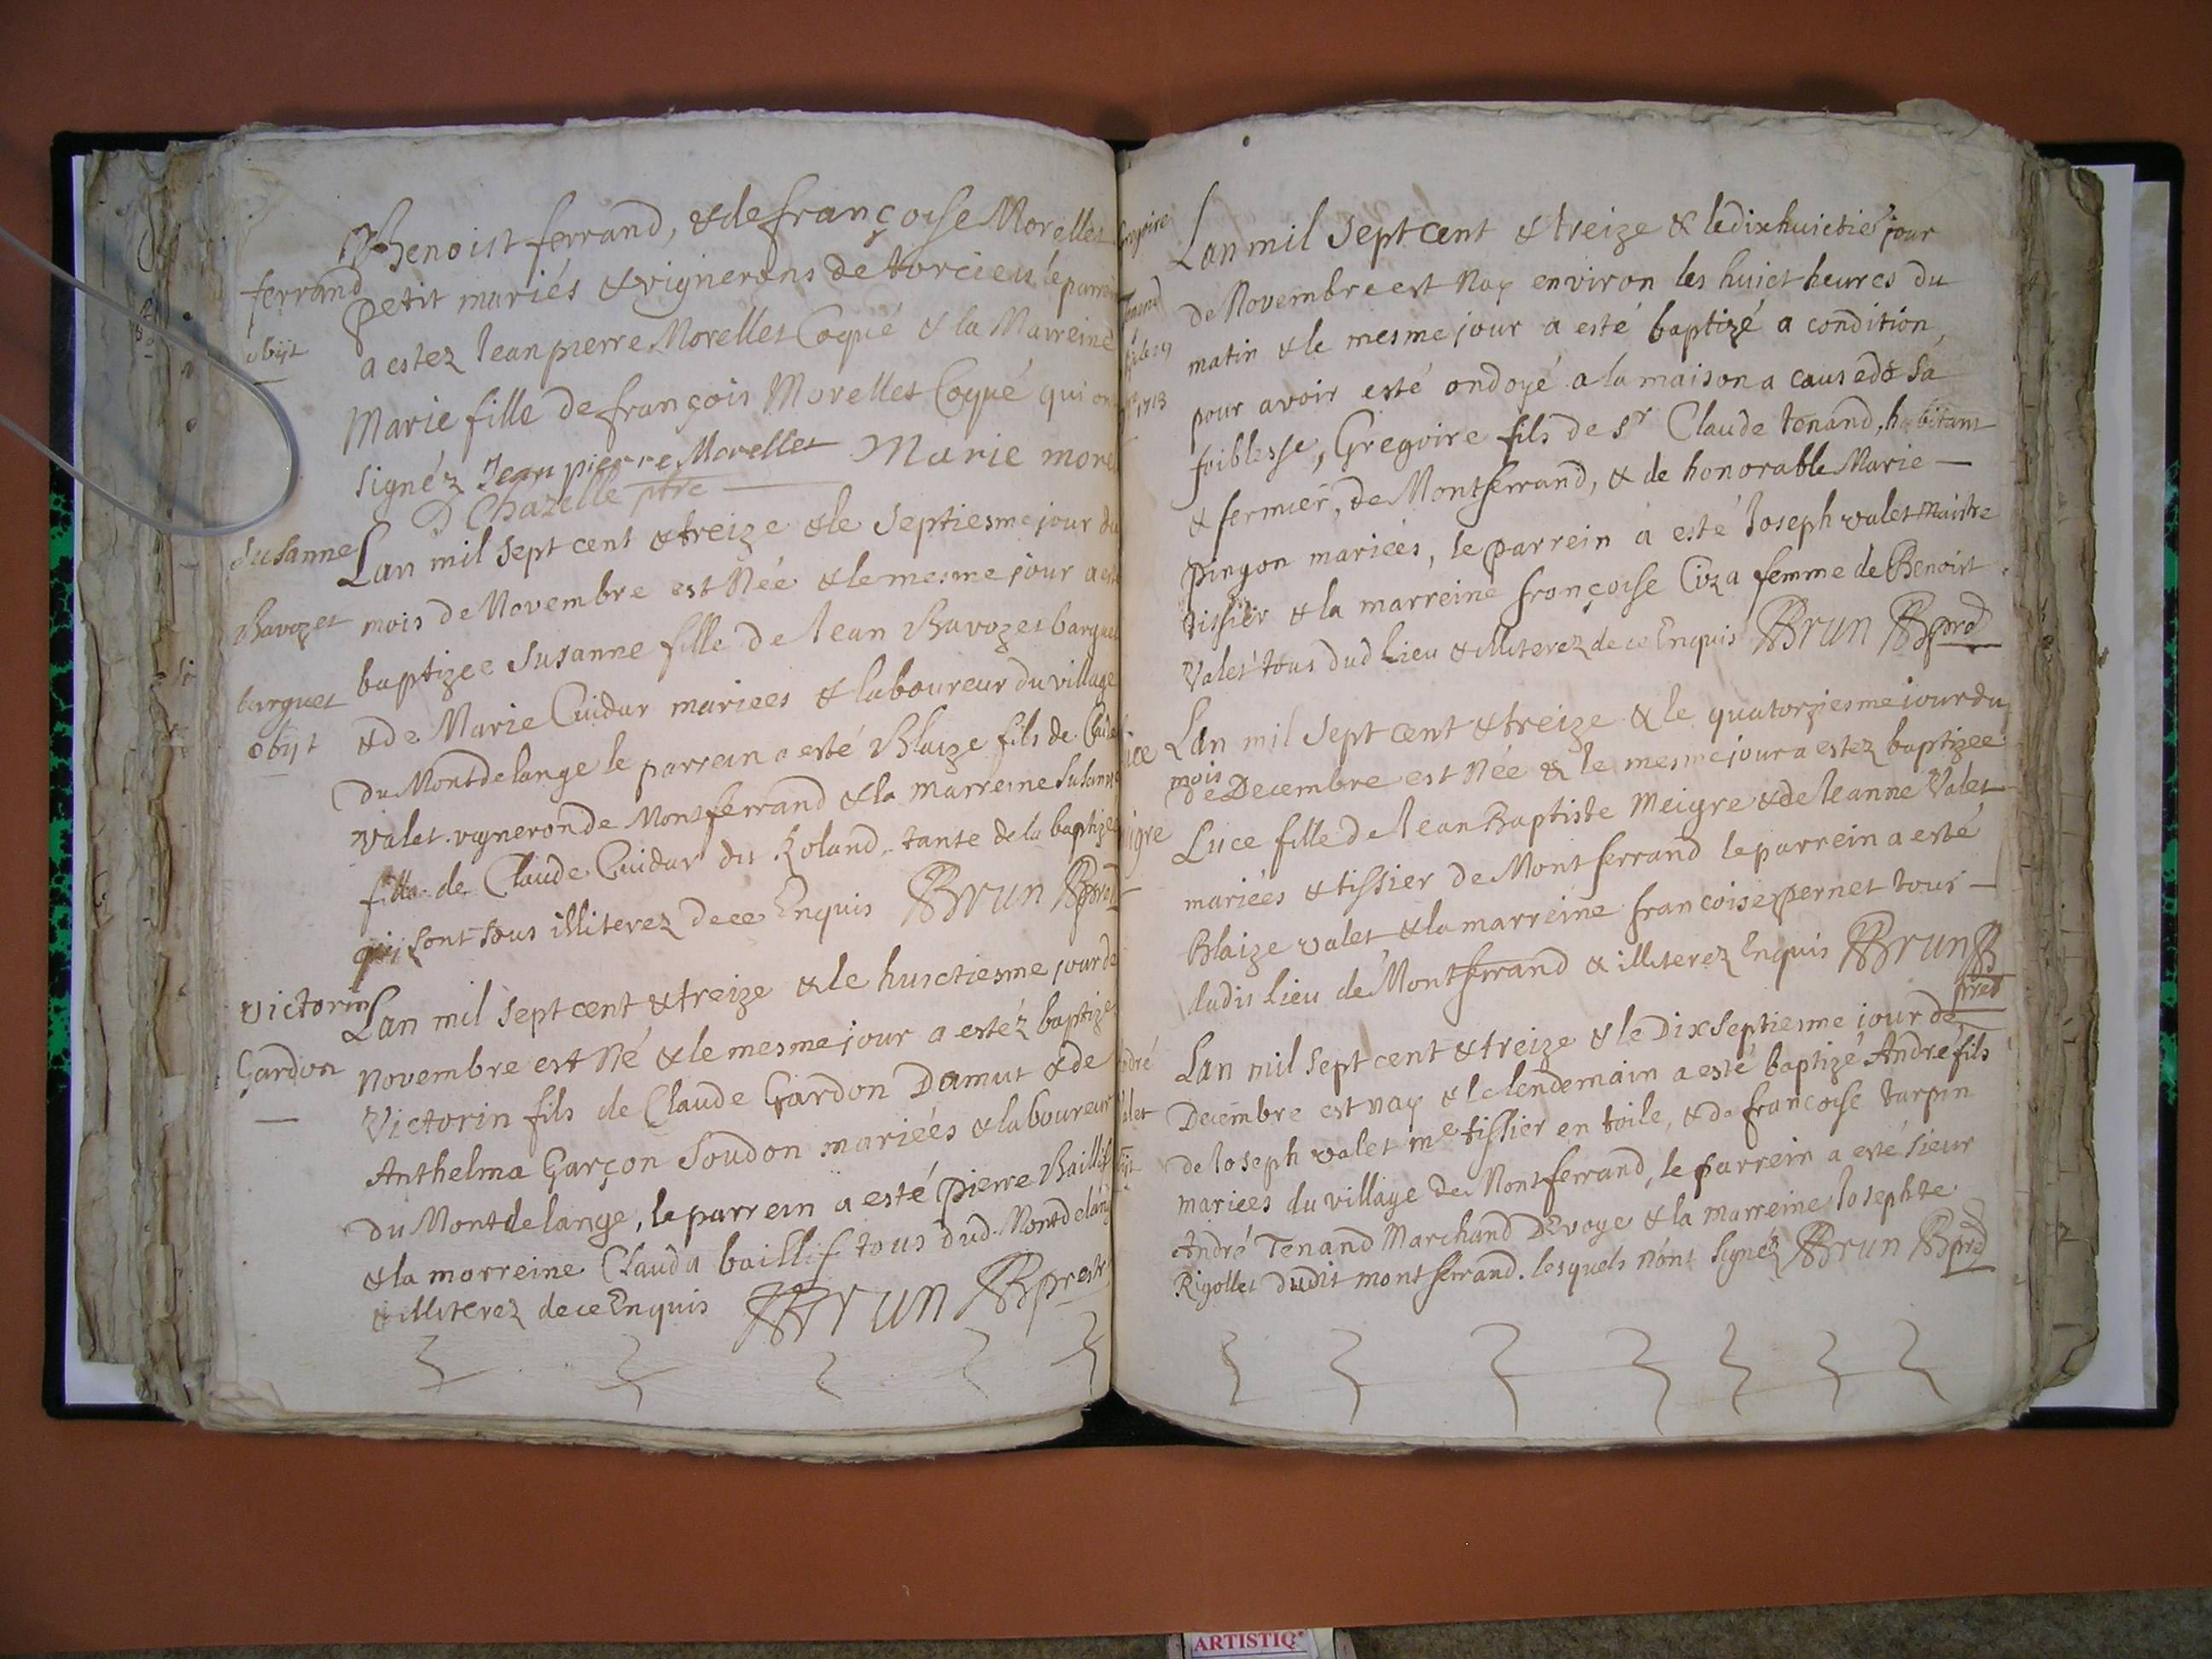 Benoist ferrand, & de françoise Morellet
ferrand
petit mariés & vignerons de torcieu le parrein
obijt
a estez Jean pierre Morellet Coqué & la Marreine
Marie fille de françois Morellet Coqué qui ont
signéz Jean pierre Morellet Marie morel
D Chazelle ptre
Susanne
Lan mil sept cent & treize & le septiesme jour du
Bavozet
mois de Novembre est Née & le mesme jour a esté
baptizee Susanne fille de Jean Bavozet barguet
barguet
& de Marie Cuidar mariees & laboureur du village
obijt
du Montdelange le parrein a esté Blaize fils de Claude
valet vigneron de Montferrand & la marreine Susanne
fille de Claude Cuidar dit Roland, tante de la baptizee
qui sont tous illiterez de ce Enquis Brun prd
Victorin
Lan mil sept cent & treize & le huictiesme jour de
Gardon
novembre est Né & le mesme jour a estéz baptize
Victorin fils de Claude Gardon Damut & de
Anthelma Garçon Soudon mariées & laboureur
du Montdelange, le parrein a esté pierre Baillif
& la morreine Clauda baillif tous dud. Montdelange
& illiterez de ce Enquis Brun prestr
Gregoire
Lan mil sept cent & treize & le dixhuictie jour
Tenand
de Novembre est Nay environ les huict heures du
matin & le mesme jour a esté baptizé a condition,
1713
pour avoir esté ondoyé a la maison a cause de sa
foiblesse, Gregoire fils de sr Claude tenand, habitant
& fermier, de Montferrand, & de honorable Marie
pingon mariées, le parrein a esté Joseph valet Maistre
tissier & la marreine françoise Ciza femme de Benoist
Valet tous dud Lieu & illiterez de ce Enquis Brun prd
Luce
Lan mil sept cent & treize & le quatorziesme jour du
mois
de Decembre est Née & le mesme jour a estez baptizee
Meigre
Luce fille de Jean Baptiste Meigre & de Jeanne Valet
mariées & tissier de Montferrand le parrein a esté
Blaize valet & la marreine francoise pernet tous
dudit Lieu de Montferrand & illiterez Enquis Brun
prêt
André
Lan mil sept cent & treize & le Dix septiesme jour de
Decembre est nay & le lendemain a esté baptizé André fils
Valet
de Joseph valet me tissier en toile, & de francoise turpin
obijt
mariees du village de Montferrand, le parrein a esté sieur
André Tenand Marchand Devoge & la marreine Josephte
Rigollet dudit montferrand. lesquels n'ont signéz Brun prd
ARTISTIQ